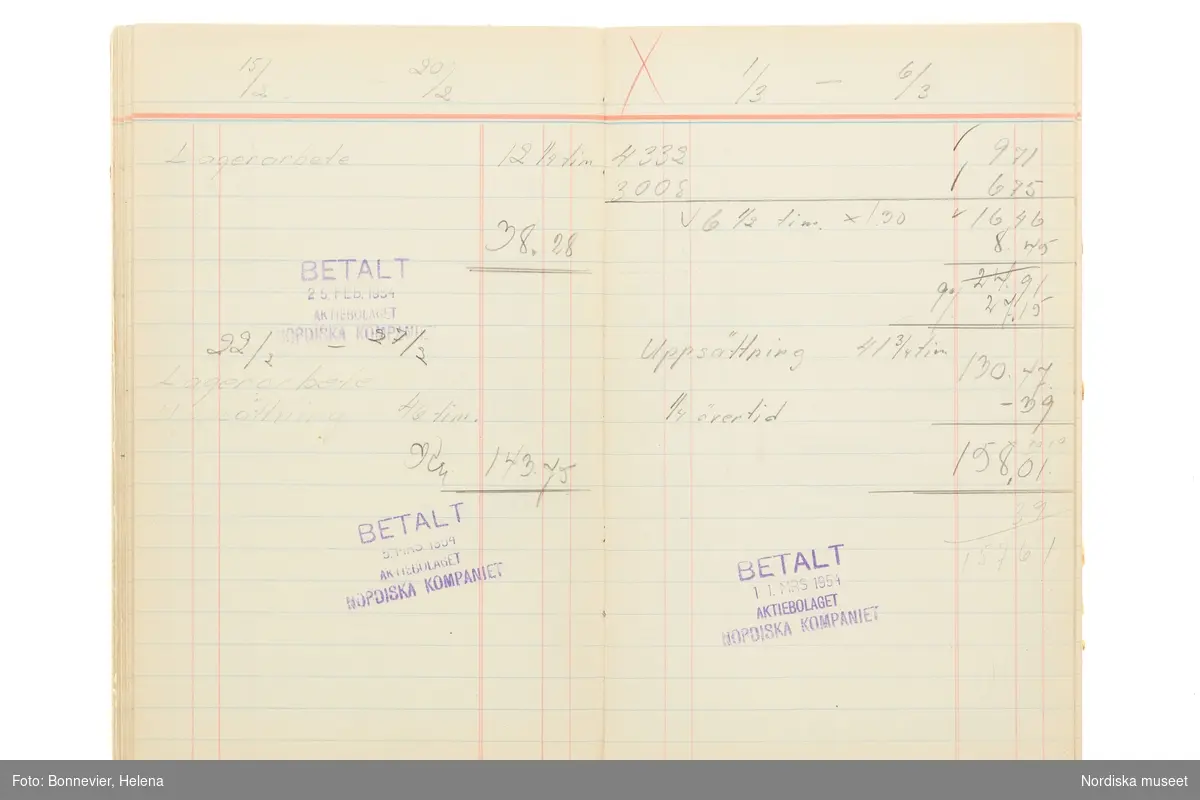 15/2 20/2
Lagerarbete 12 1/2 tim
38.28
BETALT
25. FEB. 1954
AKTIEBOLAGET
NORDISKA KOMPANIET
22/2 — 27/2
Lagerarbete
tim.
143.75
BETALT
5. MRS 1954
AKTIEBOLAGET
NORDISKA KOMPANIET
X 1/3 — 6/3
4332 971
3008 675
√ 6 1/2 tim. × 130 √ 16,46
8.45
24.91
27,15
Uppsättning 41 3/4 tim
130.47
1/4 övertid -39
158,01.
39
15761
BETALT
11. MRS 1954
AKTIEBOLAGET
NORDISKA KOMPANIET
Foto: Bonnevier, Helena
Nordiska museet